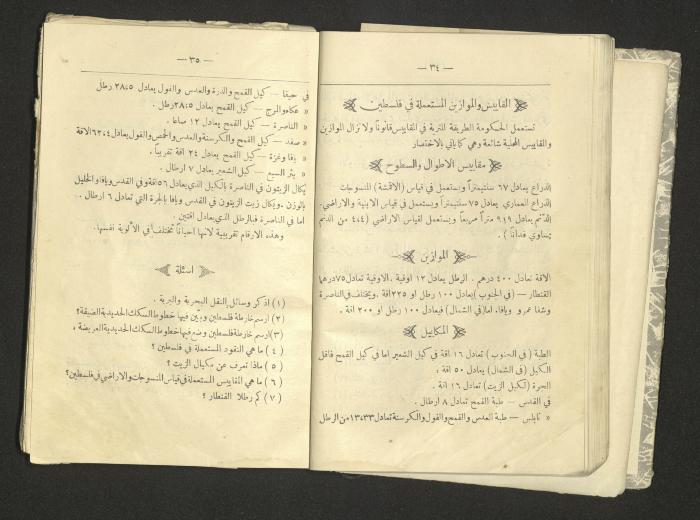 — ٣٤ —
المقاييس والموازين المستعملة في فلسطين
تستعمل الحكومة الطريقة المترية في المقاييس قانوناً ولا تزال الموازين
والمقاييس المحلية شائعة وهي كما يأتي بالاختصار
مقاييس الاطوال والسطوح
الذراع يعادل ٦٧ سنتيمتراً ويستعمل في قياس (الاقمشة) المنسوجات
الذراع المعماري يعادل ٧٥ سنتيمتراً ويستعمل في قياس الابنية والاراضي.
الدنم يعادل ٩١٩ متراً مربعاً ويستعمل لقياس الاراضي (٤،٤ من الدنم
تساوي فداناً) .
الموازين
الاقة تعادل ٤٠٠ درهم . الرطل يعادل ١٢ اوقية . الاوقية تعادل ٧٥ درهما
القنطار — (في الجنوب) يعادل ١٠٠ رطل او ٢٢٥ اقة . ويختلف في الناصرة
وشفا عمرو ويافا. اما (في الشمال) فيعادل ١٠٠ رطل او ٢٠٠ اقة .
المكاييل
الطبة (في الجنوب) تعادل ١٦ اقة في كيل الشعير اما في كيل القمح فاقل
الكيل (في الشمال) يعادل ٥٠ اقة .
الجرة (لكيل الزيت) تعادل ١٦ اقة .
في القدس — طبة القمح تعادل ٨ ارطال .
» نابلس — طبة العدس والقمح والفول والكرسنة تعادل ١٣،٤٣٣ من الرطل
— ٣٥ —
في حيفا — كيل القمح والذرة والعدس والفول يعادل ٢٨،٥ رطل
» عكا والمرج — كيل القمح يعادل ٢٨،٥ رطل .
» الناصرة — كيل القمح يعادل ١٢ صاعا .
» صفد — كيل القمح والكرسنة والعدس والحمص والفول يعادل ٦٢،٤ الاقة
» يافا وغزة — كيل القمح يعادل ٢٤ اقة تقريباً .
» بئر السبع — كيل الشعير يعادل ٧ ارطال .
يكال الزيتون في الناصرة بالكيل الذي يعادل ٥٦ اقة وفي القدس ويافا والخليل
بالوزن . ويكال زيت الزيتون في القدس ويافا بالجرة التي تعادل ٦ ارطال .
اما في الناصرة فبالرطل الذي يعادل اقتين .
وهذه الارقام تقريبية لانها احياناً تختلف في الالوية نفسها.
اسئلة
(١) اذكر وسائل النقل البحرية والبرية .
(٢) ارسم خارطة فلسطين وبين فيها خطوط السكك الحديدية الضيقة؟
(٣) ارسم خارطة فلسطين وضع فيها خطوط السكك الحديدية العريضة .
(٤) ما هي النقود المستعملة في فلسطين ؟
(٥) ماذا تعرف عن مكيال الزيت ؟
(٦) ما هي المقاييس المستعملة في قياس المنسوجات والاراضي في فلسطين؟
(٧) كم رطلا القنطار ؟